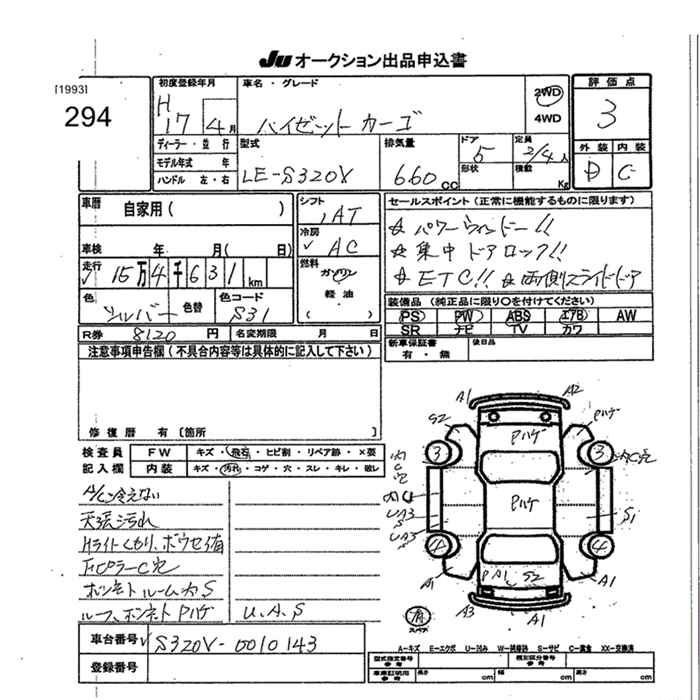 Ju オークション出品申込書
[1993]
294
初度登録年月
H
17 4月
ディーラー・並行
モデル年式 年
ハンドル 左・右
車名・グレード
ハイゼットカーゴ
2WD
4WD
評価点
3
外装 内装
D C-
型式
LE-S320V
排気量
660 CC
ドア 5
形状
定員 2/4人
積載 Kg
車歴
自家用( )
車検 年 月( 日)
走行 15万4千631km
色
シルバー
色替
色コード
S31
シフト
AT
冷房
AC
燃料
ガソリン
軽油
セールスポイント(正常に機能するものに限ります)
☆ パワーウィンドー!!
☆ 集中ドアロック!!
☆ ETC!! ☆ 両側スライドドア
装備品(純正品に限り○を付けてください)
PS PW ABS エアB AW
SR ナビ TV カワ
R券 8120円 名変期限 月 日
新車保証書
有・無
後日品
注意事項申告欄(不具合内容等は具体的に記入して下さい)
修復歴 有〔箇所 〕
検査員
記入欄
FW キズ・飛石・ヒビ割・リペア跡・X要
内装 キズ・汚れ・コゲ・穴・スレ・キレ・破レ
A/C冷えない
天張汚れ
Hライトくもり、ボウセイ有
FピラーC穴
ボンネットルーム内S
ルーフ、ボンネットPハゲ
U.A.S
A1 A2
S2
Pハゲ Pハゲ
3 3
AC穴
内C穴
Pハゲ
UA3
S
UA3
S
S1
4 4
A1
PA1 S2
A1
有
スペア
A3
A1
車台番号 S320V-0010143
登録番号
A-キズ E-エクボ U-凹み W-補修跡 S-サビ C-腐食 XX-交換済
型式指定番号
参考
類別区分番号
参考
車庫証明用
参考
長さ cm 幅 cm 高さ cm